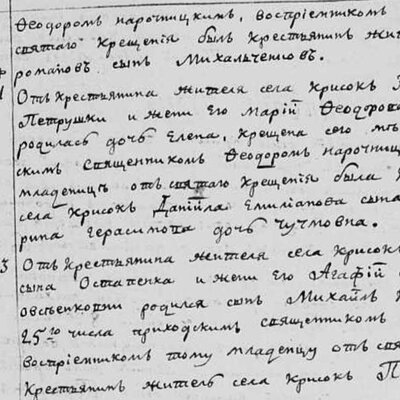 Ѳеодоромъ нарочницкимъ, воспріемникомъ
святаго крещенія былъ крестьянинъ жит
романовъ сынъ Михальченковъ.
Отъ крестьянина жителя села крисокъ
Петрушки и жены его Маріи Ѳеодоров
родилась дочь Елена, крещена сего мѣ
скимъ священникомъ Ѳеодоромъ нарочниц
младеницъ отъ святаго крещенія была
села крисокъ Даніила Емиліанова сына
рина герасимова дочь чучмовна.
3 Отъ крестьянина жителя села крисокъ
сына Остапенка и жены его Агафіи
родился сынъ Михаилъ
25го числа приходскимъ священникомъ
воспріемникомъ тому младенцу отъ свя
крестьянинъ житель села крисокъ П